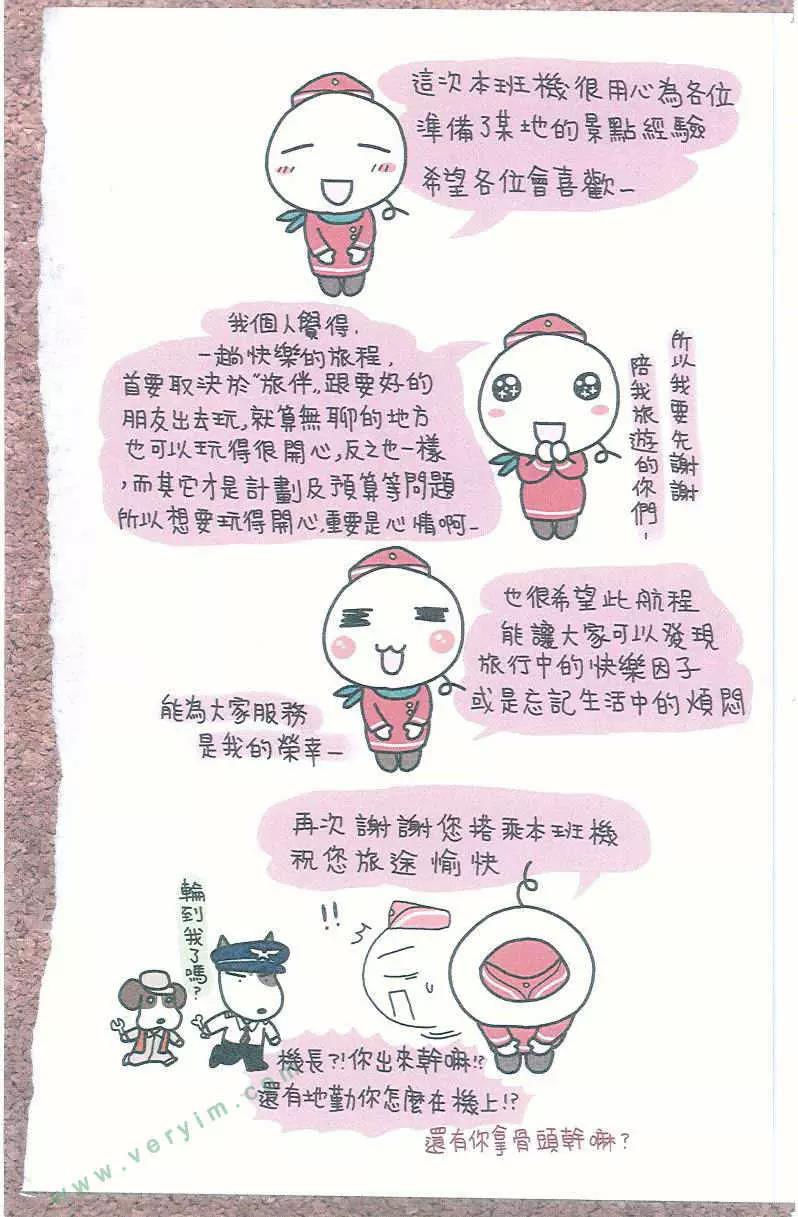 這次本班機很用心為各位
準備了某地的景點經驗
希望各位會喜歡_
我個人覺得,
一趟快樂的旅程,
首要取決於"旅伴",跟要好的
朋友出去玩,就算無聊的地方
也可以玩得很開心,反之也一樣
,而其它才是計劃及預算等問題
所以想要玩得開心,重要是心情啊_
所以我要先謝謝
陪我旅遊的你們,
也很希望此航程
能讓大家可以發現
旅行中的快樂因子
或是忘記生活中的煩悶
能為大家服務
是我的榮幸_
再次謝謝您搭乘本班機
祝您旅途愉快
!!
輪到我了嗎?
機長?!你出來幹嘛!?
還有地勤你怎麼在機上!?
還有你拿骨頭幹嘛?
www.veryim.com